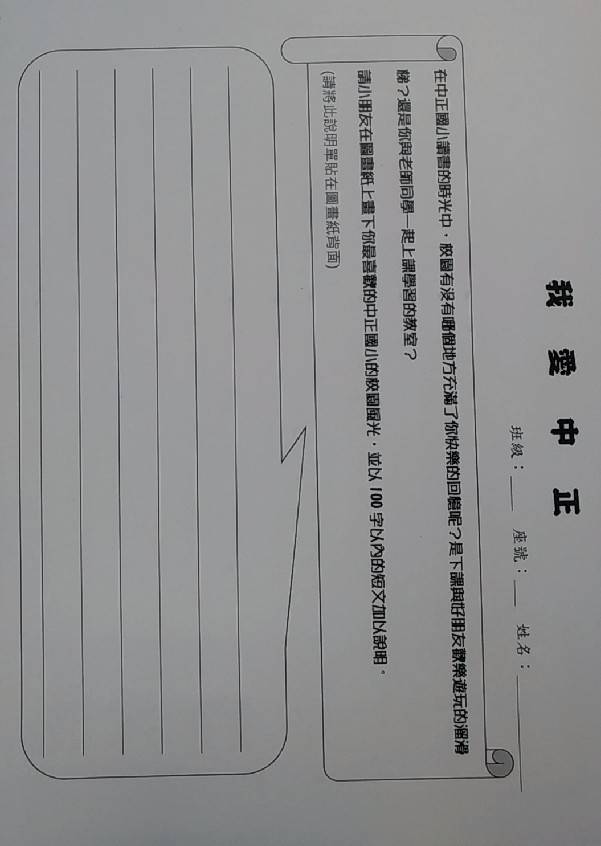 我愛中正
班級：___ 座號：___ 姓名：________
在中正國小讀書的時光中，校園有沒有哪個地方充滿了你快樂的回憶呢？是下課與好朋友歡樂遊玩的溜滑
梯？還是你與老師同學一起上課學習的教室？
請小朋友在圖畫紙上畫下你最喜歡的中正國小的校園風光，並以 100 字以內的短文加以說明。
(請將此說明單貼在圖畫紙背面)